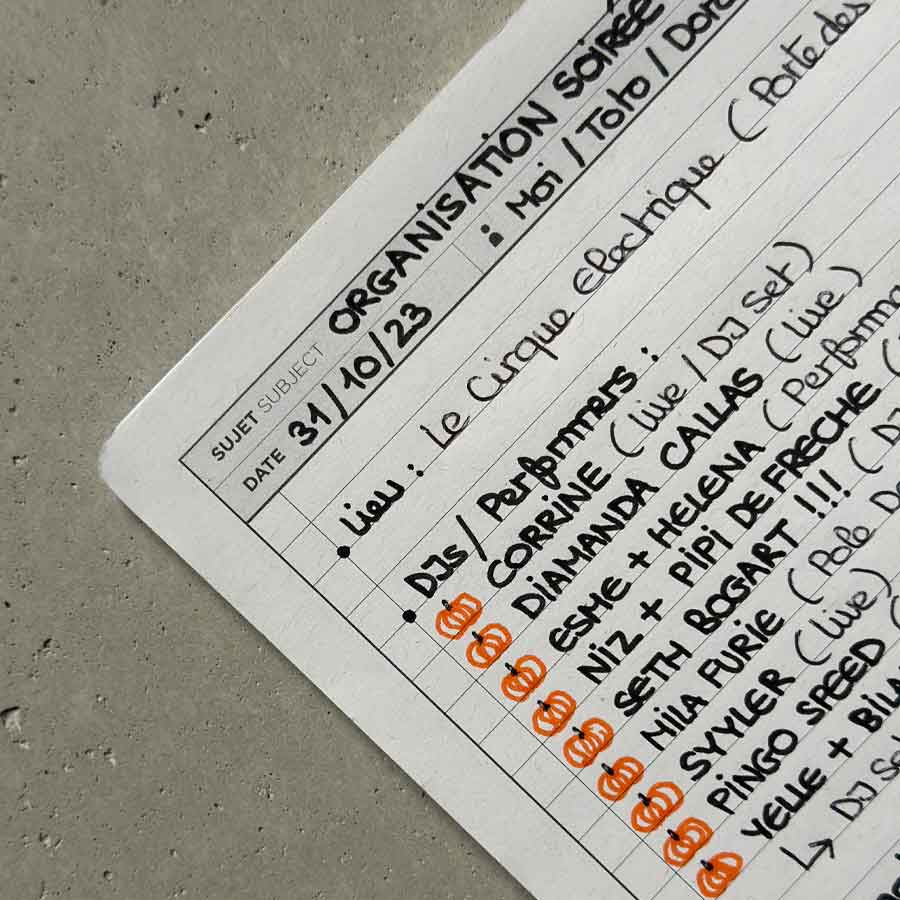 SUJET SUBJECT ORGANISATION SOIRÉE
DATE 31/10/23 : Moi / Toto /
• Lieu : Le Cirque Electrique (Porte des
• DJs / Performers :
CORRINE (live / DJ Set)
DIAMANDA CALLAS (live)
ESME + HELENA (Performa
NIZ + PIPI DE FRECHE (
SETH BOGART !!! (DJ
MIIA FURIE (Pole Da
SYYLER (live)
PINGO SPEED (
YELLE + BILA
↳ DJ Se